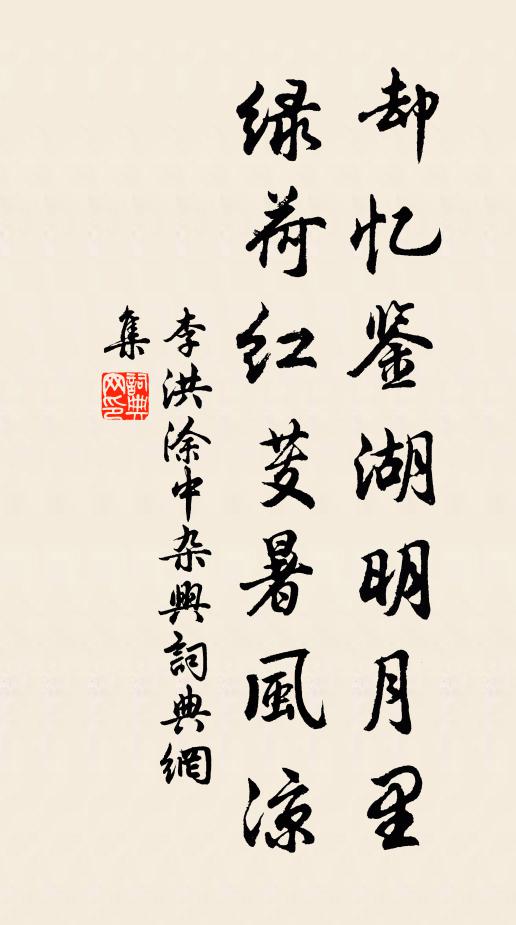 却忆鉴湖明月里
绿荷红芰暑风凉
李洪涂中杂兴詞典網
集
詞典网印